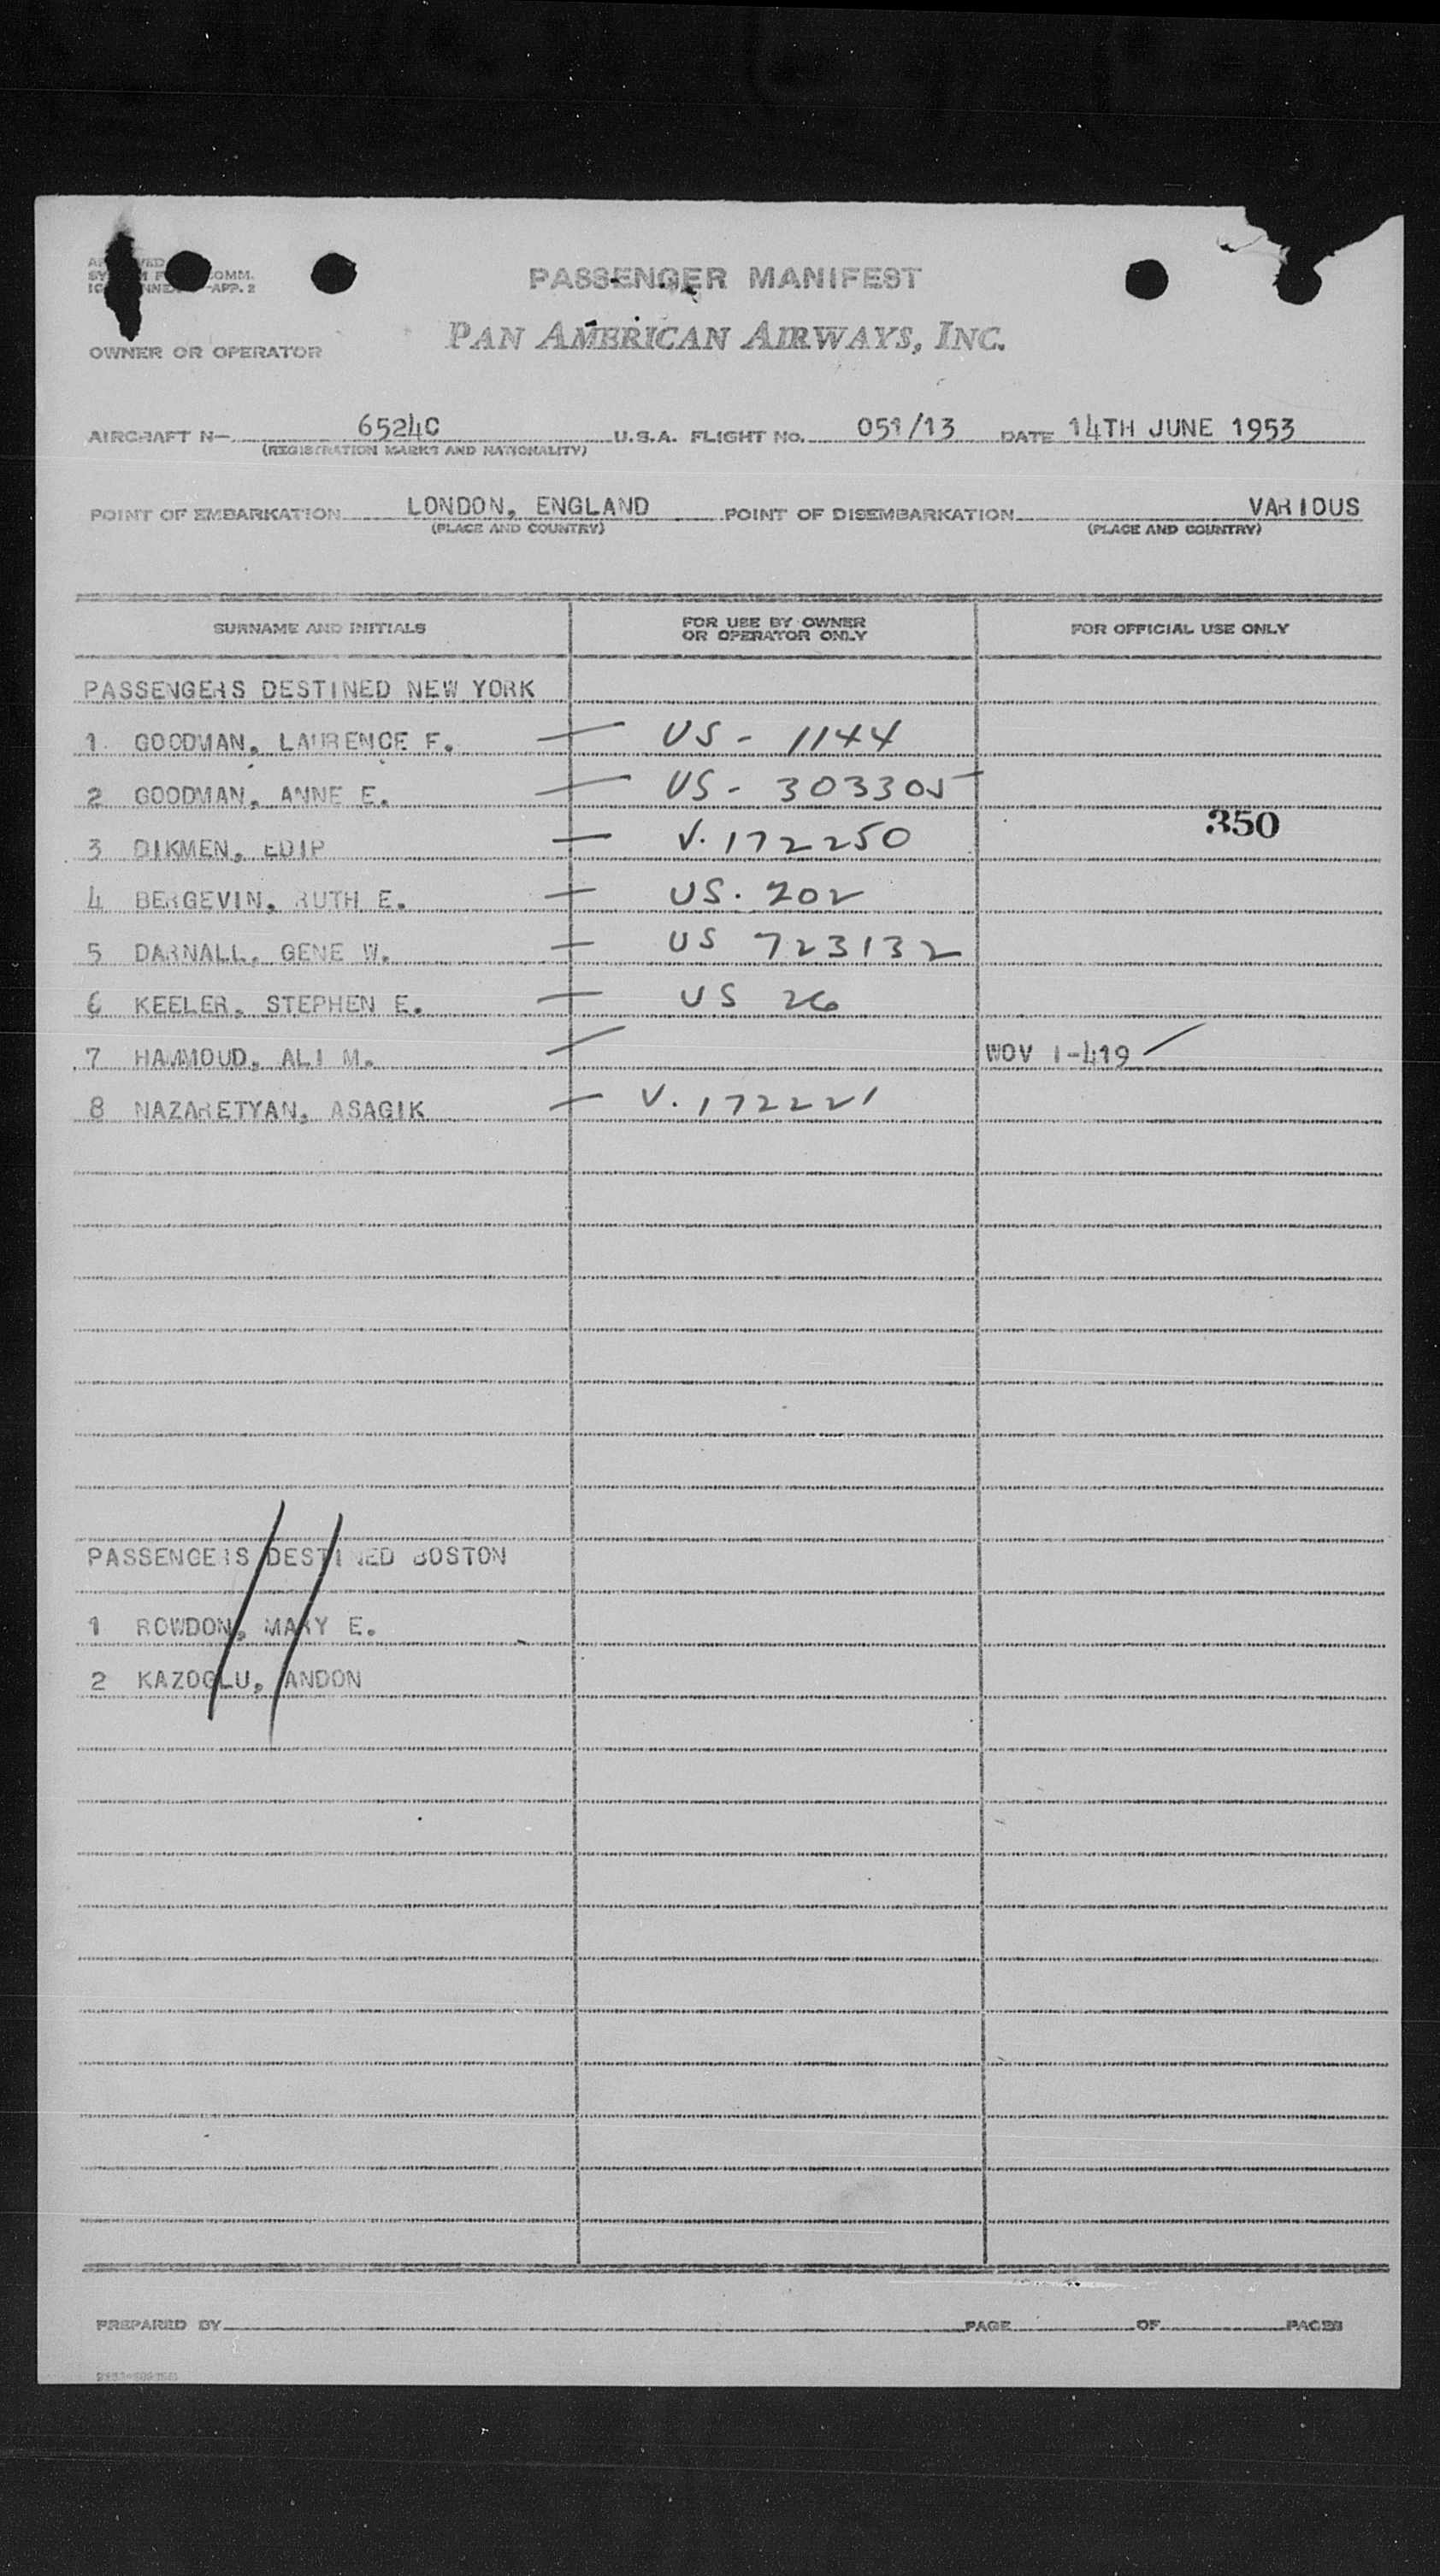 COMM.
APP. 2
PASSENGER MANIFEST
PAN AMERICAN AIRWAYS, INC.
OWNER OR OPERATOR
AIRCRAFT N— 6524C U.S.A. FLIGHT NO. 051/13 DATE 14TH JUNE 1953
(REGISTRATION MARKS AND NATIONALITY)
POINT OF EMBARKATION LONDON, ENGLAND POINT OF DISEMBARKATION VARIOUS
(PLACE AND COUNTRY) (PLACE AND COUNTRY)
SURNAME AND INITIALS FOR USE BY OWNER OR OPERATOR ONLY FOR OFFICIAL USE ONLY
PASSENGERS DESTINED NEW YORK
1 GOODMAN, LAURENCE F. — US - 1144
2 GOODMAN, ANNE E. — US - 303305
350
3 DIKMEN, EDIP — V. 172250
4 BERGEVIN, RUTH E. — US. 202
5 DARNALL, GENE W. — US 723132
6 KEELER, STEPHEN E. — US 26
7 HAMMOUD, ALI M. — WOV 1-419
8 NAZARETYAN, ASAGIK — V. 172221
PASSENGERS DESTINED BOSTON
1 ROWDON, MARY E.
2 KAZOGLU, ANDON
PREPARED BY PAGE OF PAGES